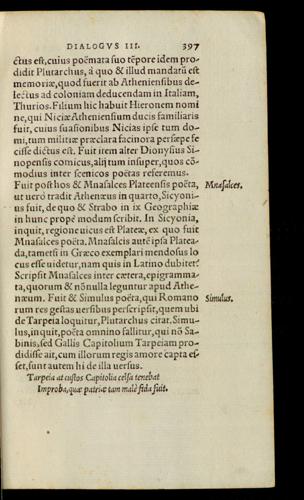 DIALOGVS III. 397
ctus est, cuius poëmata suo tēpore idem pro-
didit Plutarchus, à quo & illud mandatū est
memoriæ, quod fuerit ab Atheniensibus de-
lectus ad coloniam deducendam in Italiam,
Thurios. Filium hic habuit Hieronem nomi
ne, qui Niciæ Atheniensium ducis familiaris
fuit, cuius suasionibus Nicias ipse tum do-
mi, tum militiæ præclara facinora persæpe fe
cisse dictus est. Fuit item alter Dionysius Si-
nopensis comicus, alij tum insuper, quos cō-
modius inter scenicos poëtas referemus.
Fuit post hos & Mnasalces Plateensis poëta,
Mnasalces.
ut uerò tradit Athenæus in quarto, Sicyoni-
us fuit, de quo & Strabo in ix Geographiæ
in hunc propè modum scribit. In Sicyonia,
inquit, regione uicus est Plateæ, ex quo fuit
Mnasalces poëta. Mnasalces autē ipsa Platea-
da, tametsi in Græco exemplari mendosus lo
cus esse uidetur, nam quis in Latino dubitet?
Scripsit Mnasalces inter cætera, epigramma-
ta, quorum & nōnulla leguntur apud Athe-
næum. Fuit & Simulus poëta, qui Romano
Simulus.
rum res gestas uersibus perscripsit, quem ubi
de Tarpeia loquitur, Plutarchus citat. Simu-
lus, inquit, poëta omnino fallitur, qui nō Sa-
binis, sed Gallis Capitolium Tarpeiam pro-
didisse ait, cum illorum regis amore capta es-
set, sunt autem hi de illa uersus.
Tarpeia at custos Capitolia celsa tenebat
Improba, quæ patriæ tam malè fida fuit.